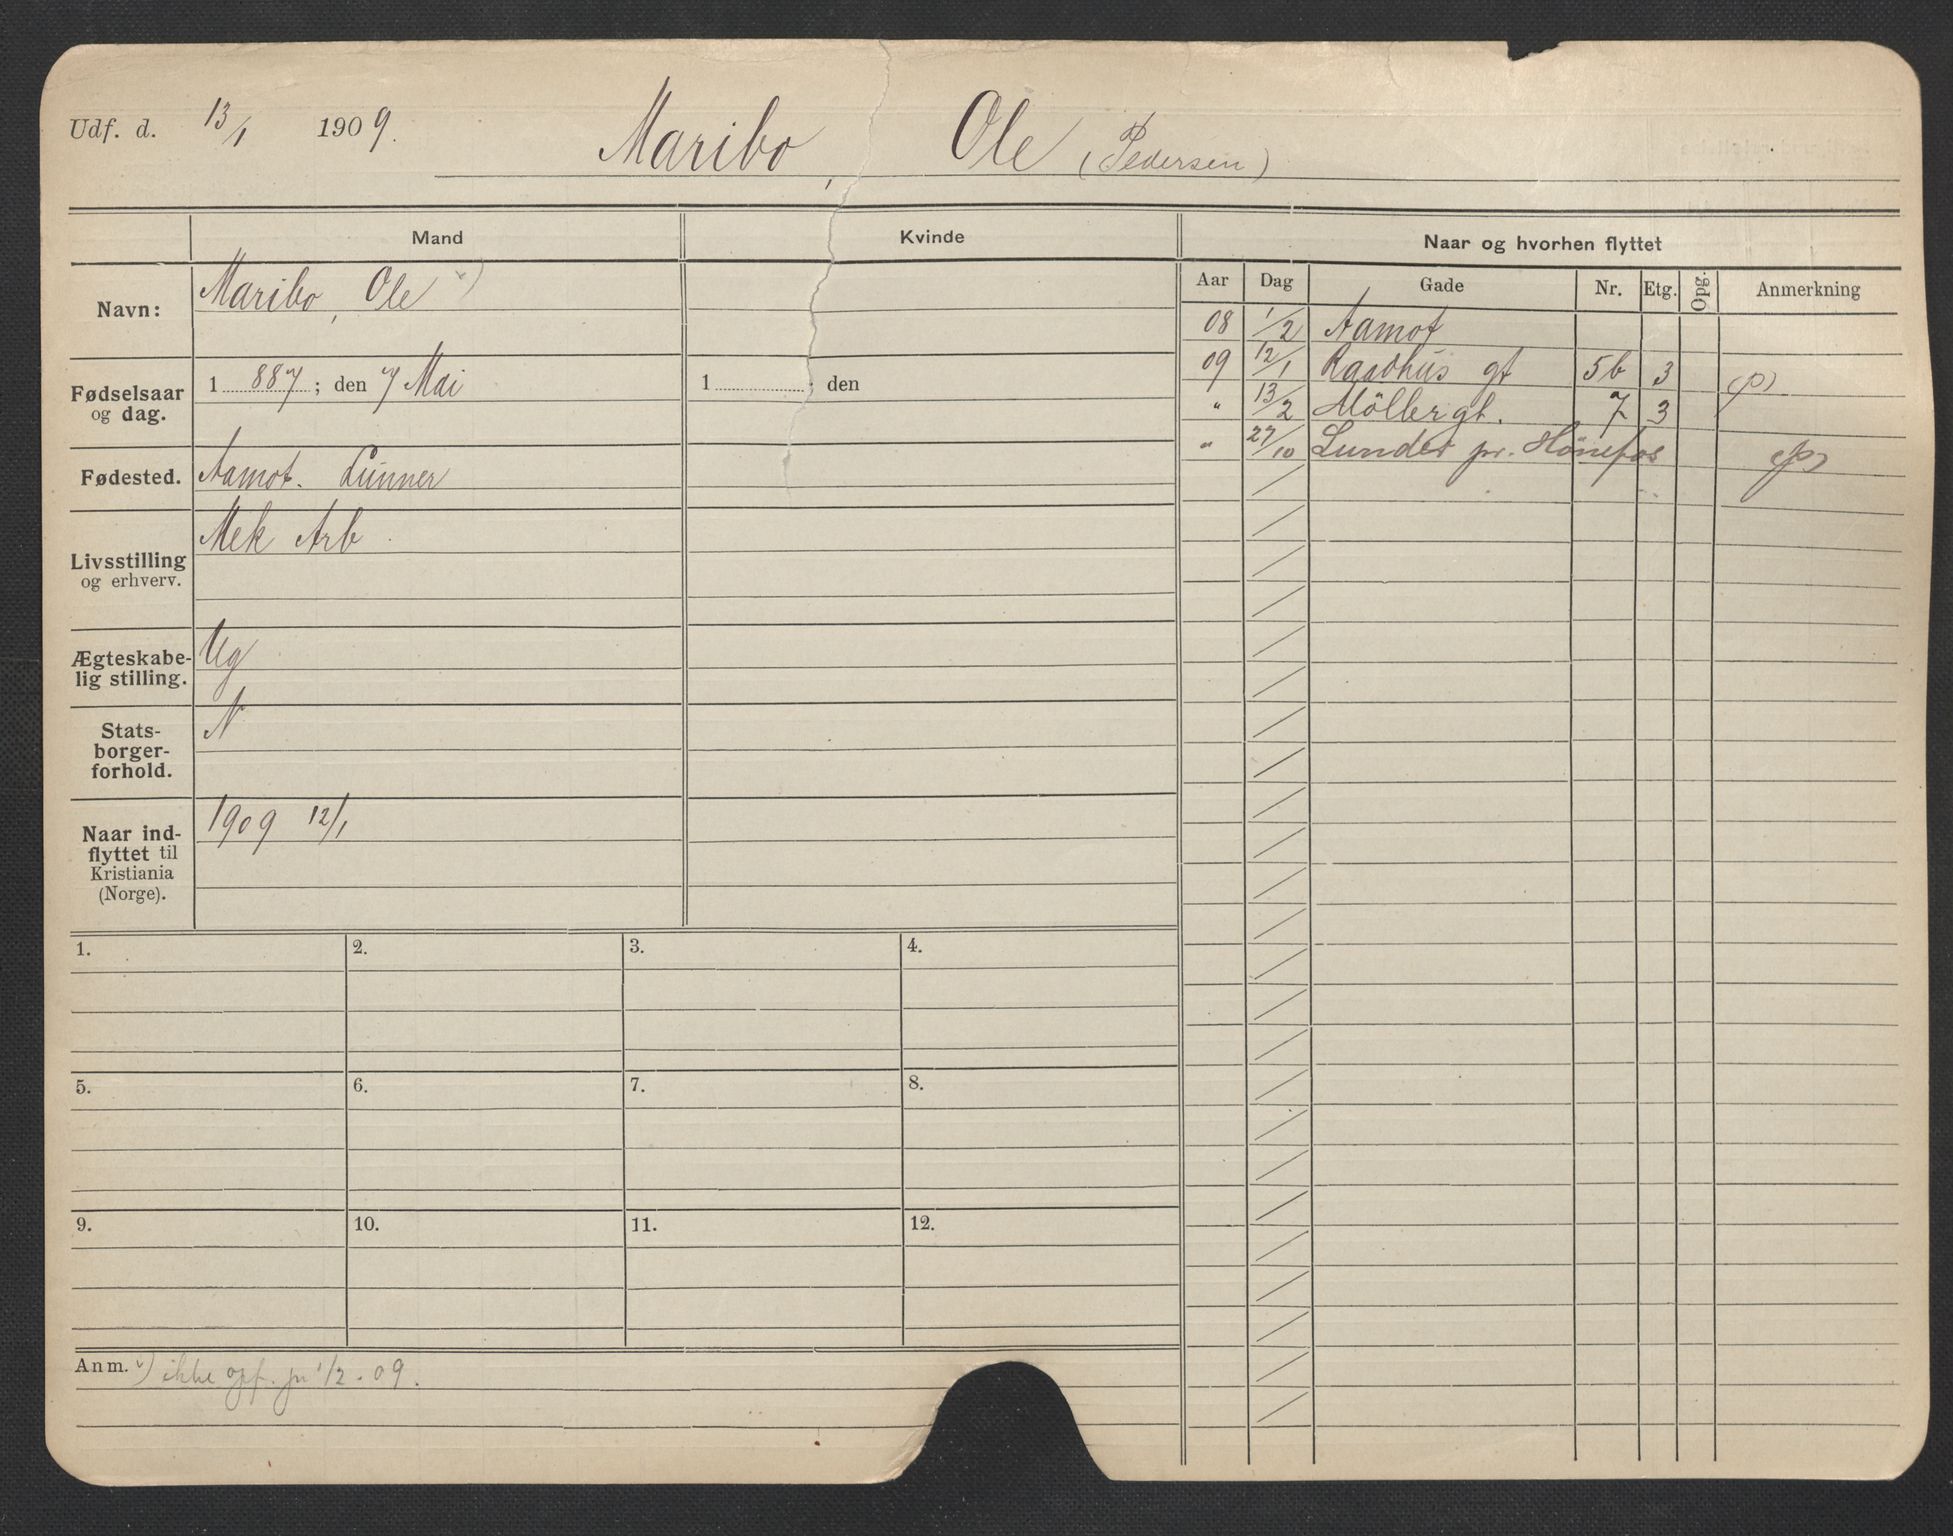 Udf. d. 13/1 1909. Maribo, Ole (Pedersen)
Mand
Kvinde
Naar og hvorhen flyttet
Navn: Maribo, Ole v)
Fødselsaar og dag. 1 887 ; den 7 Mai
1 ; den
Fødested. Aamot. Lunner
Livsstilling og erhverv. Mek Arb
Ægteskabe-
lig stilling. Ug
Stats-
borger-
forhold. N
Naar ind-
flyttet til
Kristiania
(Norge). 1909 12/1
Aar Dag Gade Nr. Etg. Opg. Anmerkning
08 1/2 Aamot
09 12/1 Raadhus gt 5b 3 (p)
" 13/2 Möllergt. 7 3
" 27/10 Lunder pr. Hönefos (p)
1. 2. 3. 4.
5. 6. 7. 8.
9. 10. 11. 12.
Anm. v) ikke opf. pr 1/2 - 09.